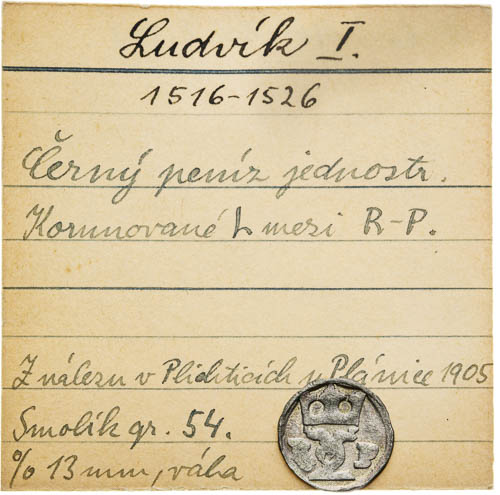 Ludvík I.
1516-1526
Černý peníz jednostr.
Korunované L mezi R-P.
Z nálezu v Plichticích u Plánice 1905
Smolík gr. 54.
% 13 mm, váha
R P